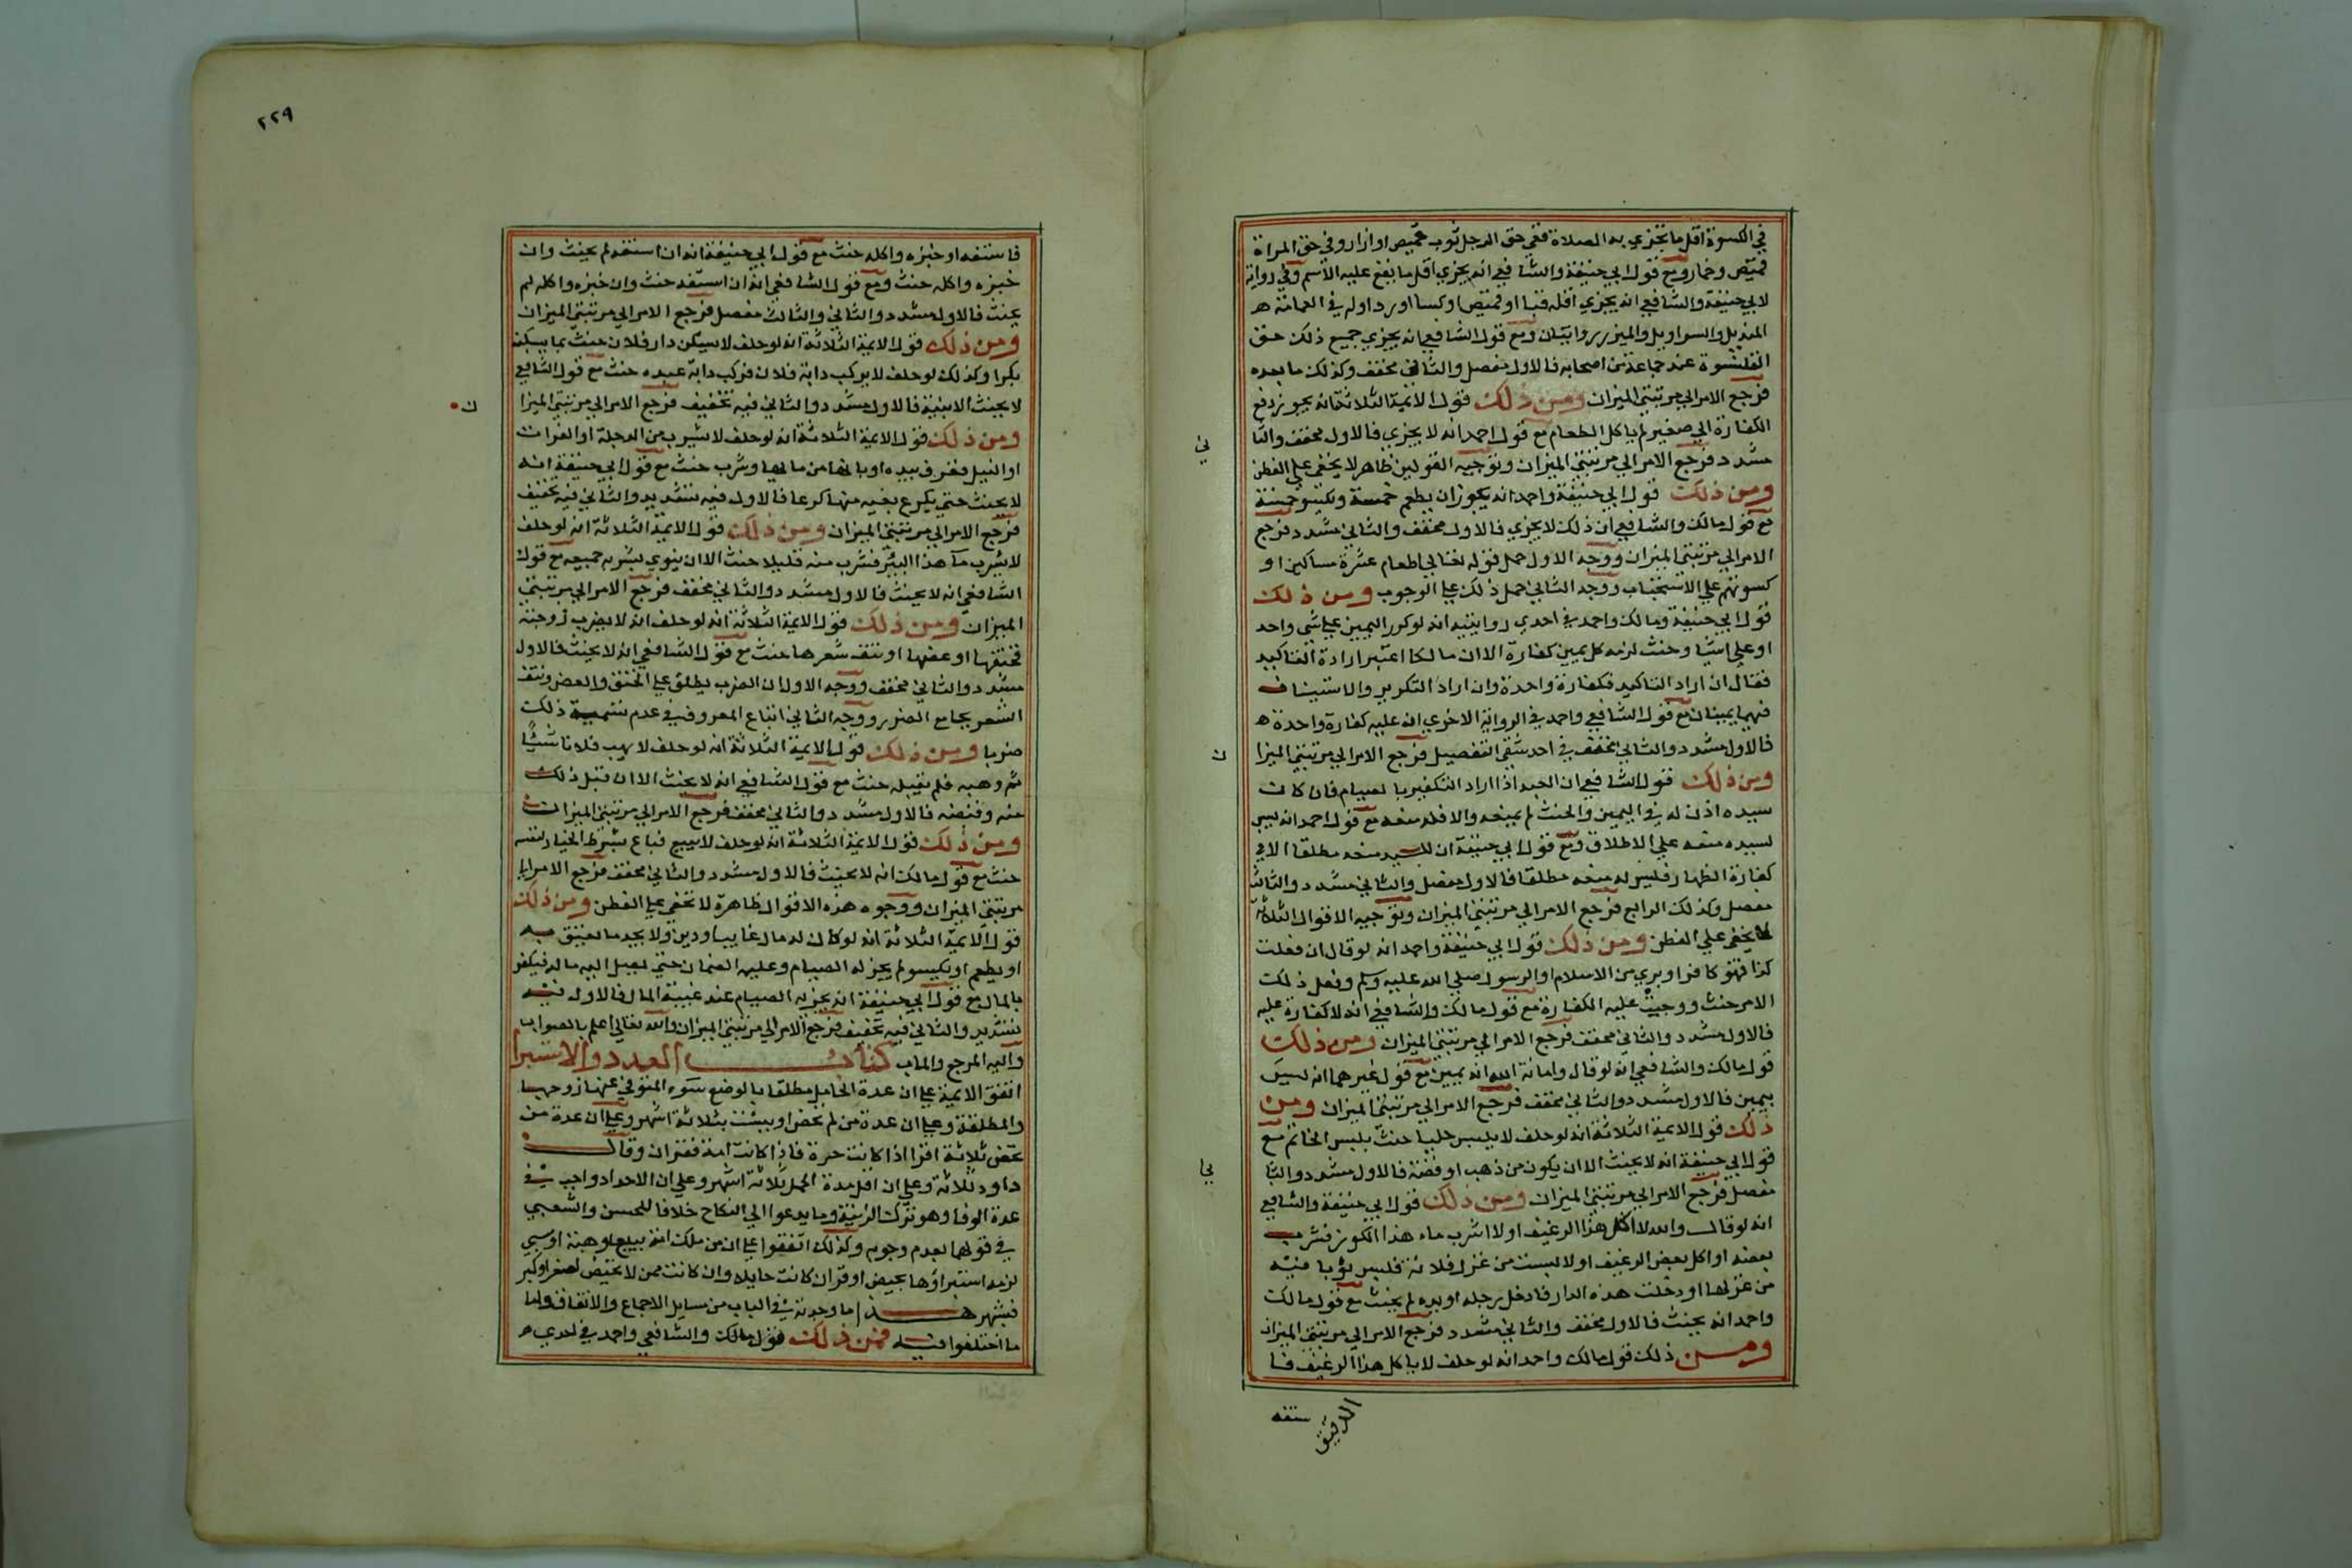 في الكسوة اقل ما تجزي به الصلاة ففي حق الرجل ثوب قميص او ازار وفي حق المراة
قميص وخمار ومع قول ابي حنيفة والشافعي انه يجزي اقل ما يقع عليه الاسم وفي رواية
لابي حنيفة والشافعي انه يجزي اقله قبا او قميص او كسا او ردا وله في العمامة
المنديل والسراويل والميزر روايتان ومع قول الشافعي انه يجزي جميع ذلك حتى
القلنسوة عند جماعة من اصحابه فالاول مفصل والثاني مخفف وكذلك ما بعده
فرجع الامر الي مرتبتي الميزان ومن ذلك قول الايمة الثلاثة انه يجوز دفع
الكفارة الي صغير لم ياكل الطعام مع قول احمد انه لا يجزي فالاول مخفف والثا
مشدد فرجع الامر الي مرتبتي الميزان وتوجيه القولين ظاهر لا يخفي علي الفطن
ومن ذلك قول ابي حنيفة واحمد انه يجوز ان يطعم خمسة ويكسو خمسة
مع قول مالك والشافعي ان ذلك لا يجزي فالاول مخفف والثاني مشدد فرجع
الامر الي مرتبتي الميزان ووجه الاول حمل قوله تعالي اطعام عشرة مساكين او
كسوتهم علي الاستحباب ووجه الثاني حمل ذلك علي الوجوب ومن ذلك
قول ابي حنيفة ومالك واحمد في احدي روايتيه انه لو كرر اليمين علي شي واحد
او علي اشيا وحنث لزمه كل يمين كفارة الا ان مالكا اعتبر ارادة التاكيد
فقال ان اراد التاكيد فكفارة واحدة وان اراد التكرير والاستيناف
فهما يمينان مع قول الشافعي واحمد في الرواية الاخري ان عليه كفارة واحدة
فالاول مشدد والثاني مخفف في احد شقي التفصيل فرجع الامر الي مرتبتي الميزا
ومن ذلك قول الشافعي ان العبد اذا اراد التكفير بالصيام فان كان
سيده اذن له في اليمين والحنث لم يمنعه والا فله منعه مع قول احمد انه ليس
لسيده منعه علي الاطلاق ومع قول ابي حنيفة ان للسيد منعه مطلقا الا في
كفارة الظهار فليس له منعه مطلقا فالاول مفصل والثاني مشدد والثالث
مفصل وكذلك الرابع فرجع الامر الي مرتبتي الميزان وتوجيه الاقوال الثلاثة
لا يخفي علي الفطن ومن ذلك قول ابي حنيفة واحمد انه لو قال ان فعلت
كذا فهو كافر او بري من الاسلام او الرسول صلي الله عليه وسلم وفعل ذلك
الامر حنث ووجبت عليه الكفارة مع قول مالك والشافعي انه لا كفارة عليه
فالاول مشدد والثاني مخفف فرجع الامر الي مرتبتي الميزان ومن ذلك
قول مالك والشافعي انه لو قال وامانة الله انه يمين مع قول غيرهما انه ليس
بيمين فالاول مشدد والثاني مخفف فرجع الامر الي مرتبتي الميزان ومن
ذلك قول الايمة الثلاثة انه لو حلف لا يلبس حليا حنث بلبس الخاتم مع
قول ابي حنيفة انه لا يحنث الا ان يكون من ذهب او فضة فالاول مشدد والثا
مفصل فرجع الامر الي مرتبتي الميزان ومن ذلك قول ابي حنيفة والشافعي
انه لو قال والله لا اكل هذا الرغيف او لا اشرب ماء هذا الكوز فشرب
بعضه او اكل بعض الرغيف او لا لبست من غزل فلانة فلبس ثوبا فيه
من غزلها او دخلت هذه الدار فادخل رجله او يده لم يحنث مع قول مالك
واحمد انه يحنث فالاول مخفف والثاني مشدد فرجع الامر الي مرتبتي الميزان
ومن ذلك قول مالك واحمد انه لو حلف لا ياكل هذا الرغيف فا
الدقيق
ستفه
ني
ن
لي
٢٢٩
فاستفه او خبزه واكله حنث مع قول ابي حنيفة انه ان استفه لم يحنث وان
خبزه واكله حنث ومع قول الشافعي انه ان استفه حنث وان خبزه واكله لم
يحنث فالاول مشدد والثاني والثالث مفصل فرجع الامر الي مرتبتي الميزان
ومن ذلك قول الايمة الثلاثة انه لو حلف لا يسكن دار فلان حنث بما يسكنه
بكرا وكذلك لو حلف لا يركب دابة فلان فركب دابة عبده حنث مع قول الشافعي
لا يحنث الا بنية فالاول مشدد والثاني فيه تخفيف فرجع الامر الي مرتبتي الميزا
ومن ذلك قول الايمة الثلاثة انه لو حلف لا يشرب من الدجلة او الفرات
او النيل فغرف بيده او باناء من مائها وشرب حنث مع قول ابي حنيفة انه
لا يحنث حتي يكرع بفيه منها كرعا فالاول فيه تشديد والثاني فيه تخفيف
فرجع الامر الي مرتبتي الميزان ومن ذلك قول الايمة الثلاثة انه لو حلف
لا يشرب ماء هذا البير فشرب منه قليلا حنث الا ان ينوي بشربه جميعه مع قول
الشافعي انه لا يحنث فالاول مشدد والثاني مخفف فرجع الامر الي مرتبتي
الميزان ومن ذلك قول الايمة الثلاثة انه لو حلف انه لا يضرب زوجته
فخنقها او عضها او نتف شعرها حنث مع قول الشافعي انه لا يحنث فالاول
مشدد والثاني مخفف ووجه الاول ان الضرب يطلق علي الخنق والعض ونتف
الشعر بجامع الضرر ووجه الثاني اتباع المعروف في عدم تسمية ذلك
ضربا ومن ذلك قول الايمة الثلاثة انه لو حلف لا يهب فلانا شيا
ثم وهبه فلم يقبله حنث مع قول الشافعي انه لا يحنث الا ان قبل ذلك
منه وقبضه فالاول مشدد والثاني مخفف فرجع الامر الي مرتبتي الميزان
ومن ذلك قول الايمة الثلاثة انه لو حلف لا يبيع فباع بشرط الخيار لنفسه
حنث مع قول مالك انه لا يحنث فالاول مشدد والثاني مخفف فرجع الامر الي
مرتبتي الميزان ووجوه هذه الاقوال ظاهرة لا تخفي علي الفطن ومن ذلك
قول الايمة الثلاثة انه لو كان له مال غايب او دين ولا يجد ما يعتق به
او يطعم او يكسو لم يجز له الصيام وعليه الضمان حتي يصل اليه ماله فيكفر
بالمال مع قول ابي حنيفة انه يجزيه الصيام عند غيبة المال فالاول فيه
تشديد والثاني فيه تخفيف فرجع الامر الي مرتبتي الميزان والله تعالي اعلم بالصواب
واليه المرجع والماب كتاب العدد والاستبرا
اتفق الايمة علي ان عدة الحامل مطلقا بالوضع سواء المتوفي عنها زوجها
والمطلقة وعلي ان عدة من لم تحض او يئست بثلاثة اشهر وعلي ان عدة من
تحض ثلاثة اقرا اذا كانت حرة فاذا كانت امة فقران وقال
داود ثلاثة وعلي ان اقل مدة الحمل ثلاثة اشهر وعلي ان الاحداد واجب في
عدة الوفا وهو ترك الزينة وما يدعوا الي النكاح خلافا للحسن والشعبي
في قولهما بعدم وجوبه وكذلك اتفقوا علي ان من ملك امة ببيع او هبة او سبي
لزمه استبراؤها بحيض او قر ان كانت حايلا وان كانت ممن لا تحيض لصغر او كبر
فبشهر هذا ما وجدته في الباب من مسايل الاجماع والاتفاق واما
ما اختلفوا فيه فمن ذلك قول مالك والشافعي واحمد في احدي
ن